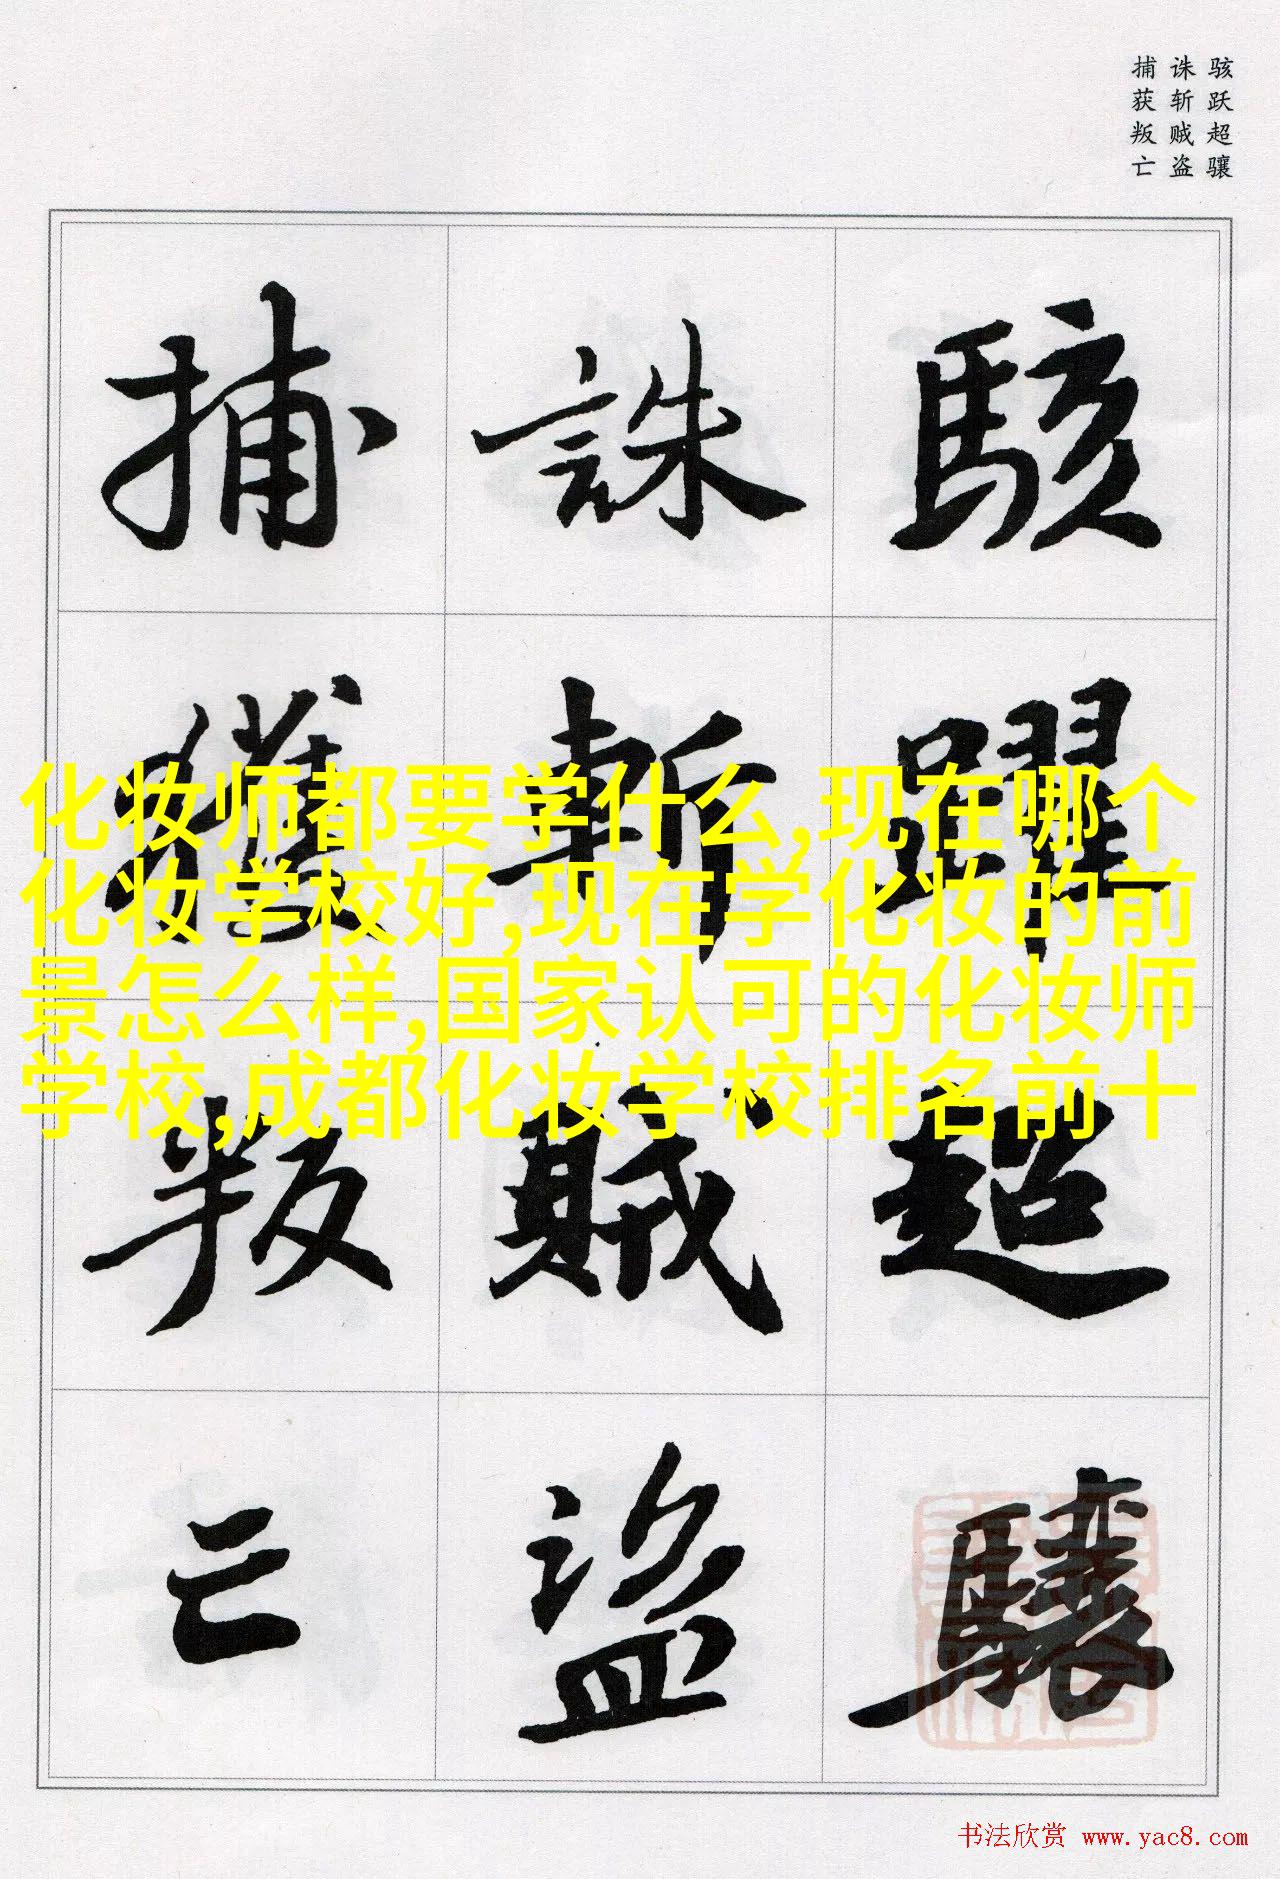 骇跃超骧
诛斩贼盗
捕获叛亡
駭躍超驤
誅斬賊盜
捕獲叛亡
化妆师都要学什么,现在哪个
化妆学校好,现在学化妆的前
景怎么样,国家认可的化妆师
学校,成都化妆学校排名前十
书法欣赏 www.yac8.com